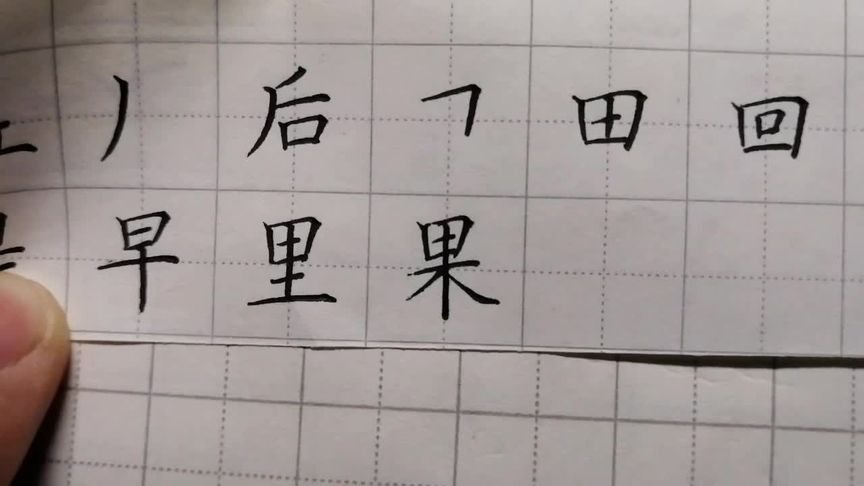 丿 后 ㇕ 田 回
早 里 果